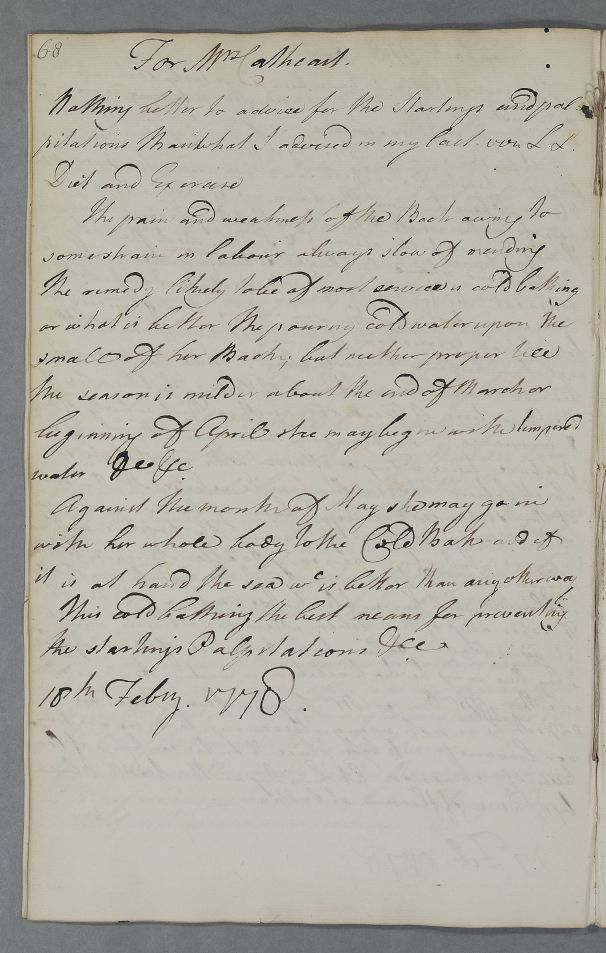 68
For Mrs Cathcart.
Nothing better to advise for the Startings and pal-
pitations than what I advised in my last
Diet and Exercise
The pain and weakness of the Back owing to
some strain in labour always slow of mending
the remedy likely to be of most service is cold bathing
or what is better the pouring cold water upon the
small of her Back; but neither proper till
the season is milder about the end of March or
beginning of April she may begin with tempered
water &c &c
Against the month of May she may go in
with her whole body to the Cold Bath and if
it is at hand the sea wc is better than any other way
This cold bathing the best means for preventing
the startings Palpitations &c
18th Febry. 1778.